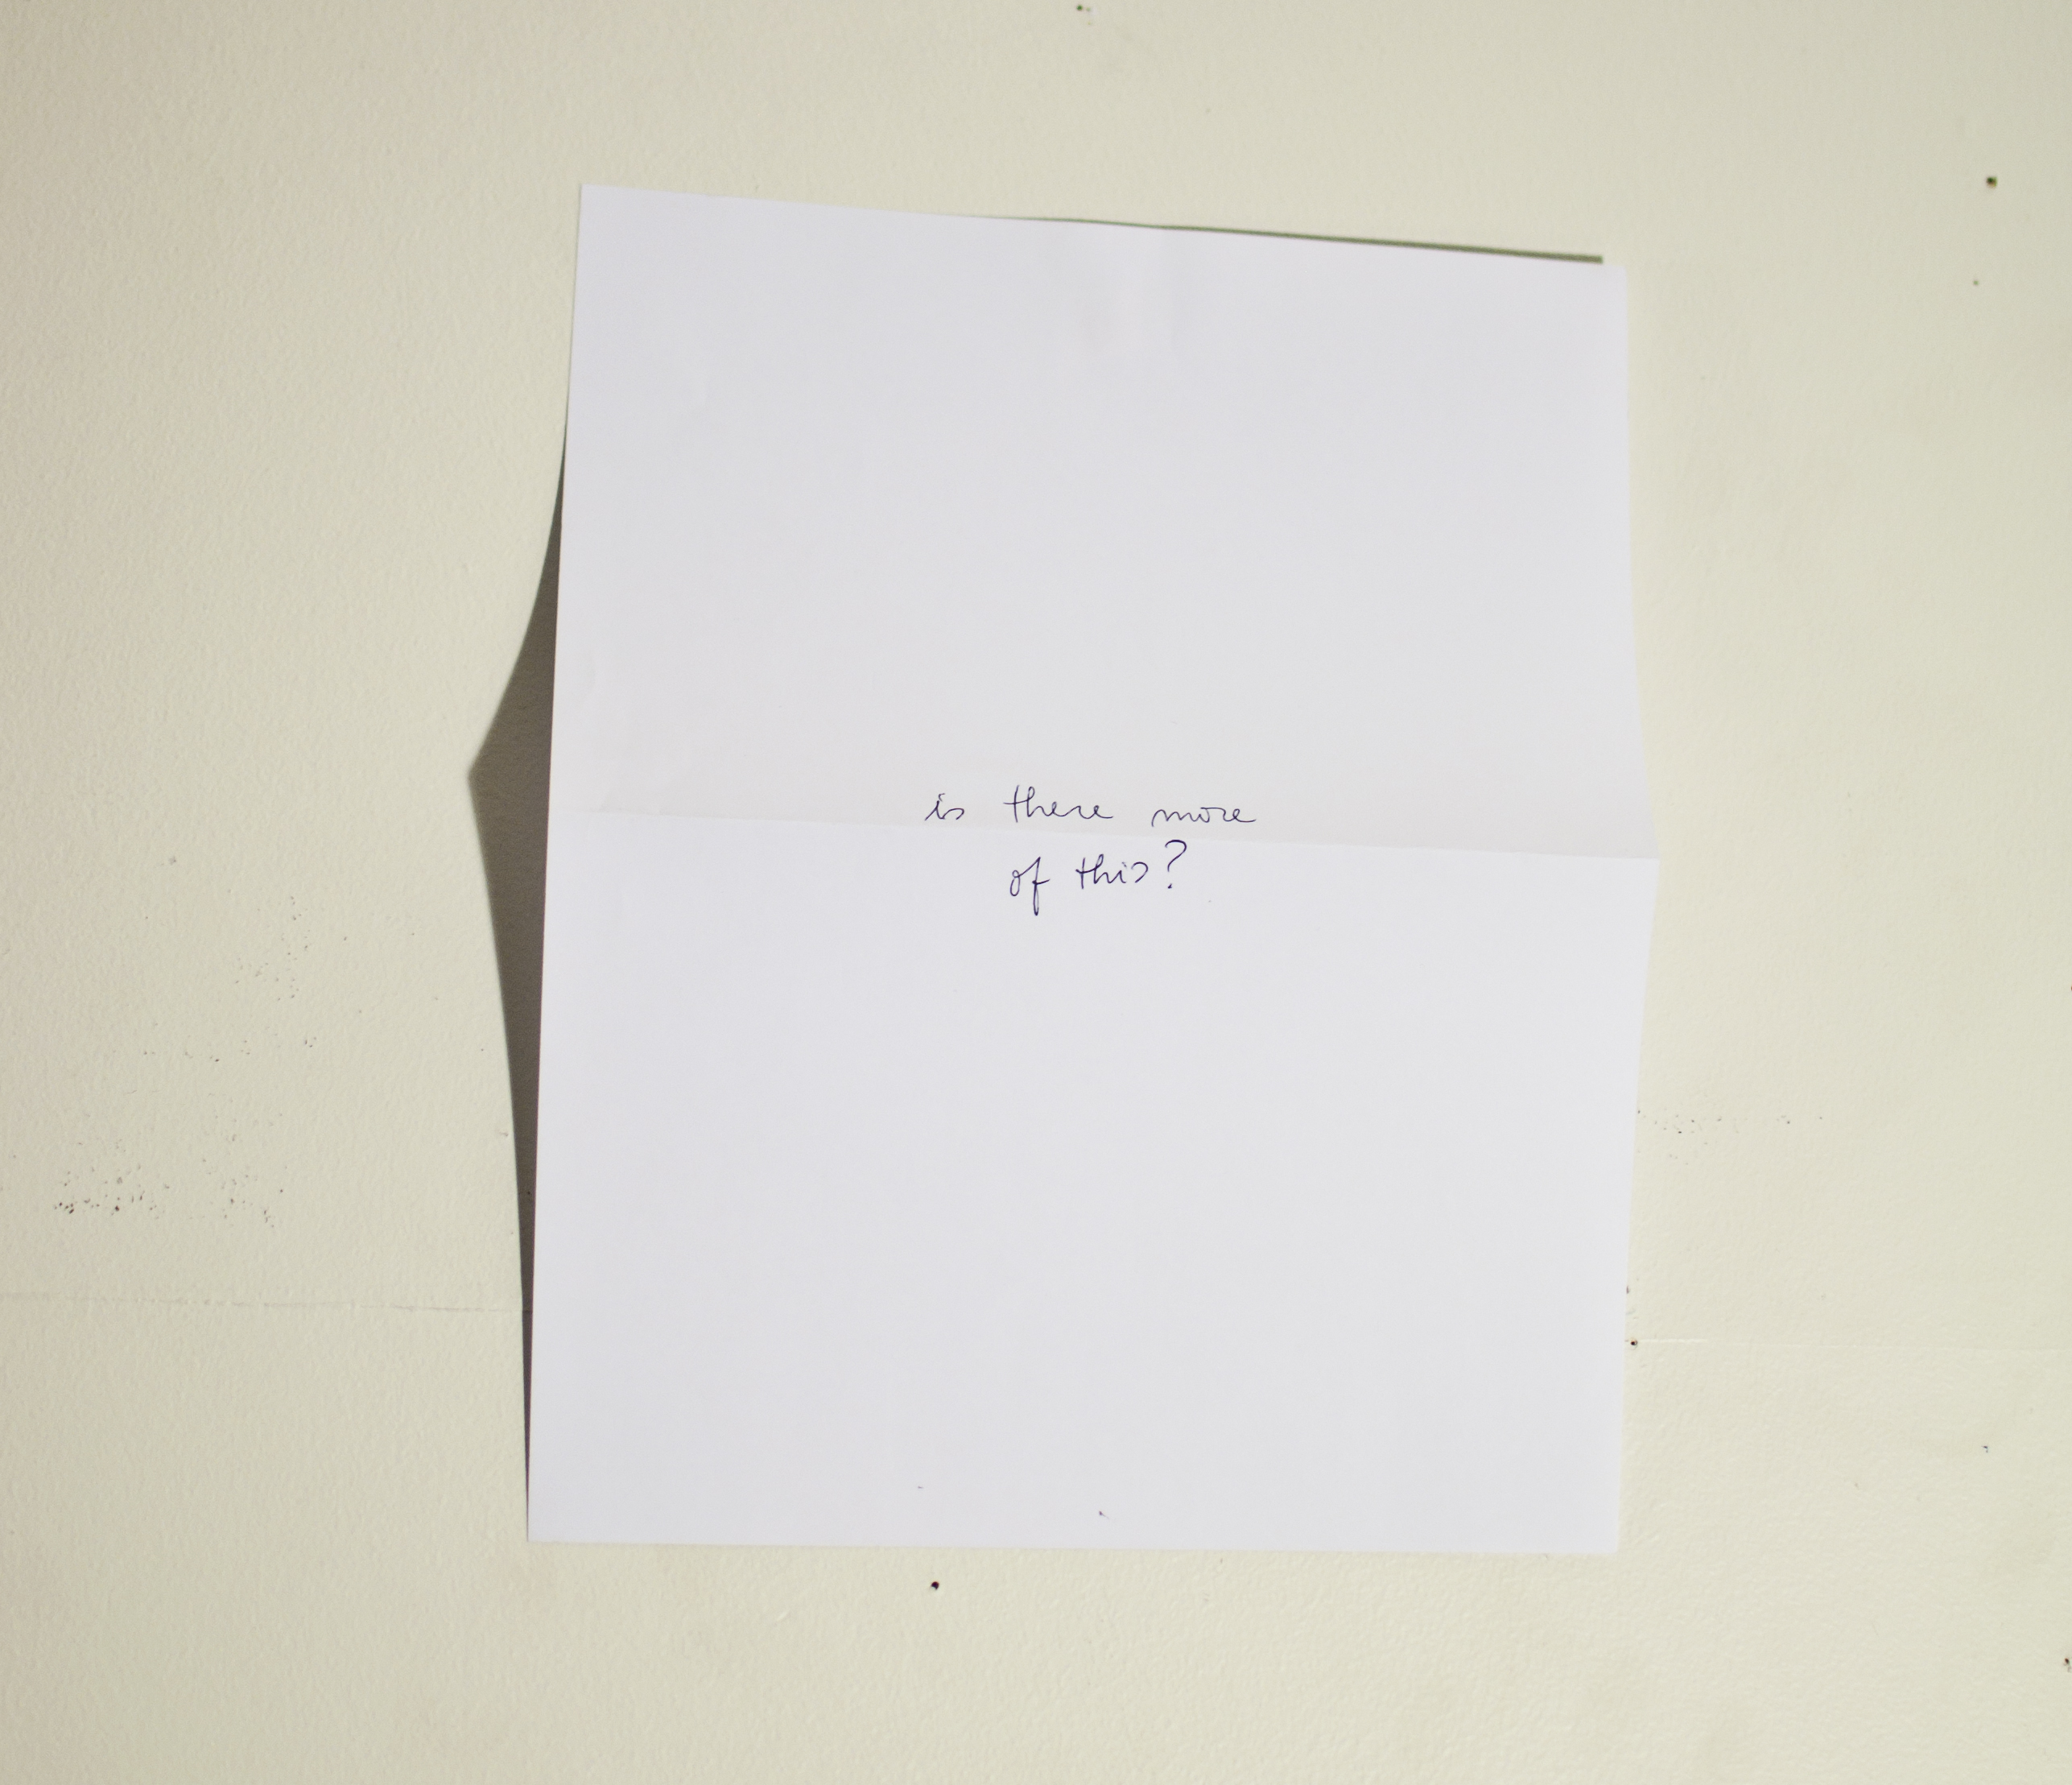 is there more
of this?